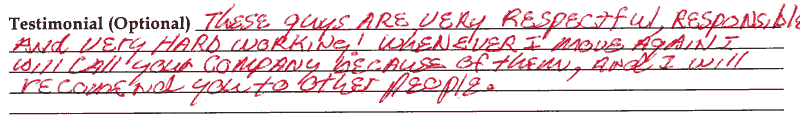 Testimonial (Optional) These guys ARE VERY RESPECTFUL, RESPONSIBLE
AND VERY HARD WORKING! WHENEVER I MOVE AGAIN I
WILL CALL YOUR COMPANY BECAUSE OF THEM, AND I WILL
RECOMEND YOU TO OTHER PEOPLE.